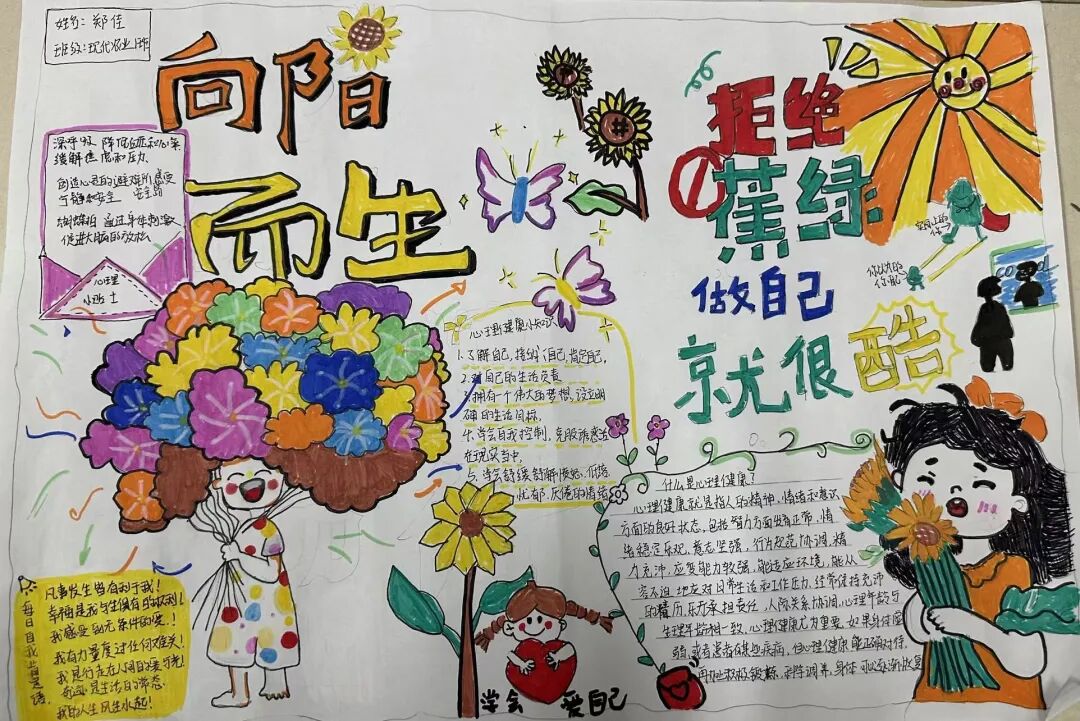 姓名:郑佳
班级:现代农业
向阳
而生
深呼吸 降低
缓解焦虑和压力
创造心灵的避难所 感受
宁静和安全
蝴蝶拍 通过身体刺激
促进大脑的放松
心理
小贴士
拒绝
蕉绿
做自己
就很
酷
实际上的
你
你以为的
你
心理健康小知识
1.了解自己,接纳自己,肯定自己,
2.对自己的生活负责
3.拥有一个伟大的梦想,设立明
确的生活目标,
4.学会自我控制,克服诱惑活
在现实当中,
5、学会舒缓舒解
忧郁、厌倦的情绪
什么是心理健康?
心理健康就是指人的精神、情绪和意识
方面的良好状态,包括智力方面发育正常,情
绪稳定乐观,意志坚强,行为规范协调,精
力充沛,应变能力较强,能适应环境,能从
容不迫地应对日常生活和工作压力,经常保持充沛
的精力,乐于承担责任,人际关系协调,心理年龄与
生理年龄相一致,心理健康尤为重要,如果身体虚
弱,或者患有某些疾病,但心理健康能正确对待,
再加积极锻炼,
调养,身体可
每日自我肯定语
凡事发生皆有利于我!
幸福是我与生俱有的权利!
我感受到无条件的爱!
我有力量度过任何难关!
我是行走在人间的
奇迹是生活的常态,
我的人生风生水起!
学会 爱自己